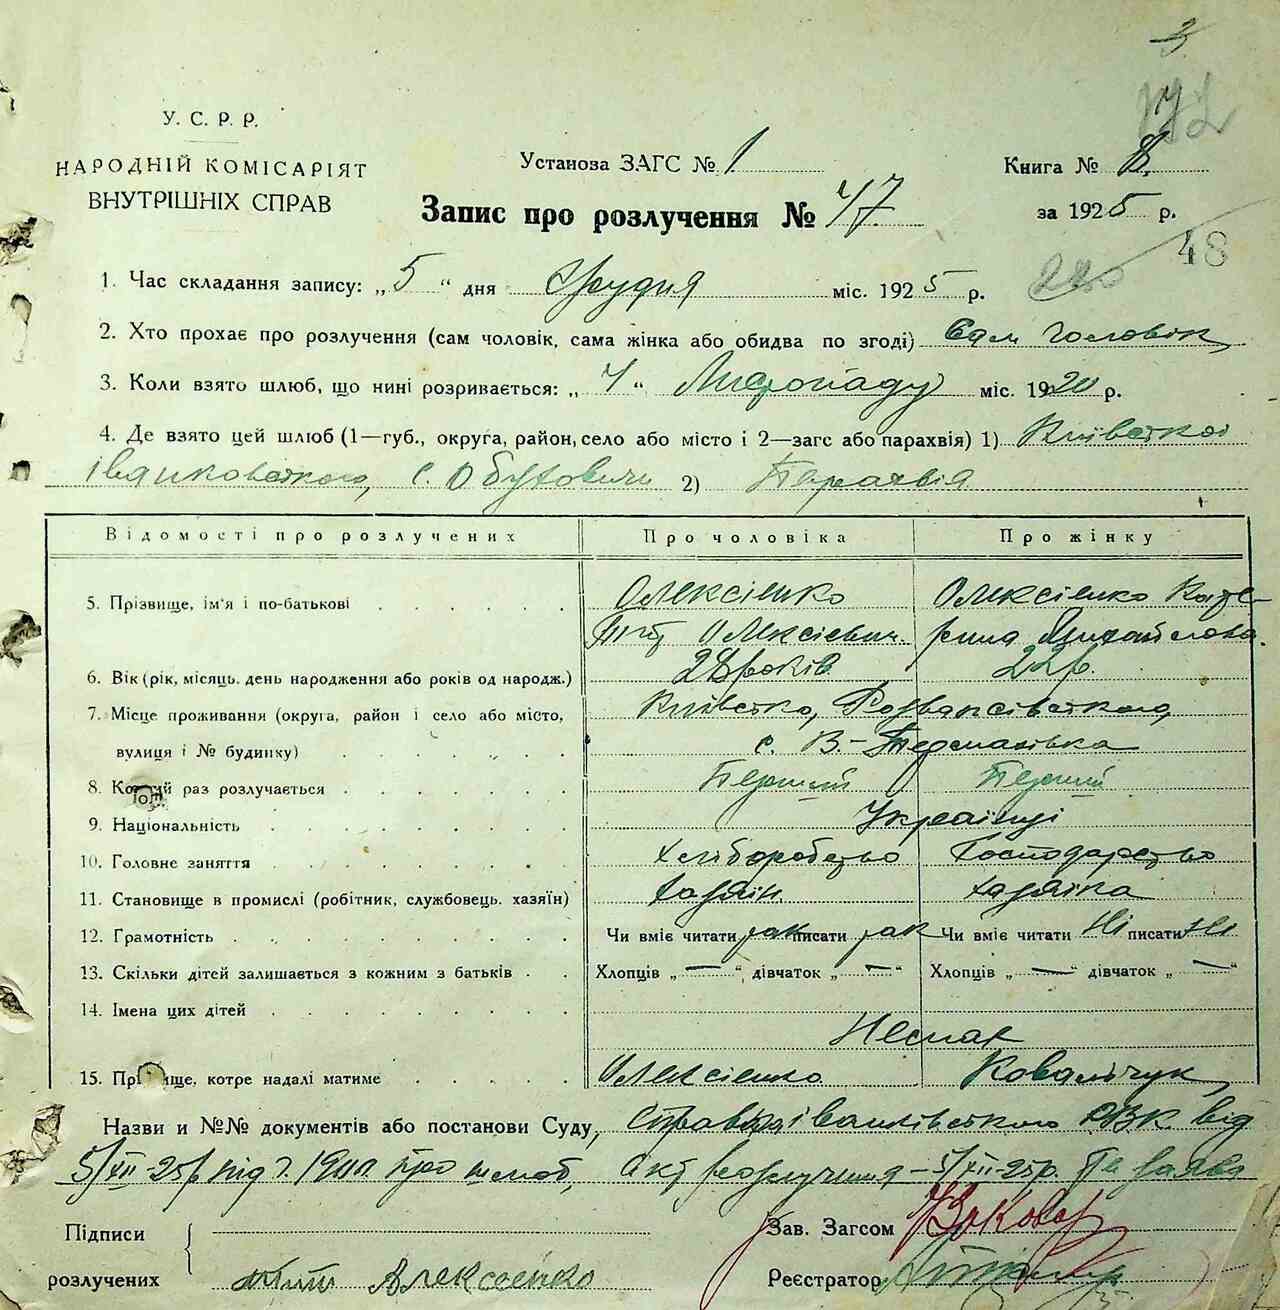 У. С. Р. Р.
НАРОДНІЙ КОМІСАРІЯТ
ВНУТРІШНІХ СПРАВ
Установа ЗАГС № 1
Книга №
Запис про розлучення № 47
за 1925 р.
48
1. Час складання запису: „5“ дня Грудня міс. 1925 р.
2. Хто прохає про розлучення (сам чоловік, сама жінка або обидва по згоді) Сам чоловік
3. Коли взято шлюб, що нині розривається: „4“ Листопаду міс. 1920 р.
4. Де взято цей шлюб (1—губ., округа, район, село або місто і 2—загс або парахвія) 1) Київської
Іванковського, с. Обуховичи 2) Парахвія
Відомості про розлучених Про чоловіка Про жінку
5. Прізвище, ім'я і по-батькові Олексієнко Олексієнко Кате-
Тит Олексієвич. рина Михайлова.
6. Вік (рік, місяць, день народження або років од народж.) 28 років 22 р.
7. Місце проживання (округа, район і село або місто, Київсько, Розважівського,
вулиця і № будинку) с. В-Термахівка
8. Котрий раз розлучається Перший Перший
9. Національність Українці
10. Головне заняття Хліборобство Господарство
11. Становище в промислі (робітник, службовець, хазяїн) Хазяїн. Хазяїка
12. Грамотність Чи вміє читати так писати так Чи вміє читати Ні писати Ні
13. Скільки дітей залишається з кожним з батьків Хлопців „—“ дівчаток „—“ Хлопців „—“ дівчаток „—“
14. Імена цих дітей
Немає
15. Прізвище, котре надалі матиме Олексієнко Ковальчук
Назви и №№ документів або постанови Суду, від
5/XII-25р. про шлюб, акт розлучення - 5/XII-25р. Та заява
Підписи
розлучених
Зав. Загсом
Тит Алексеенко
Реєстратор